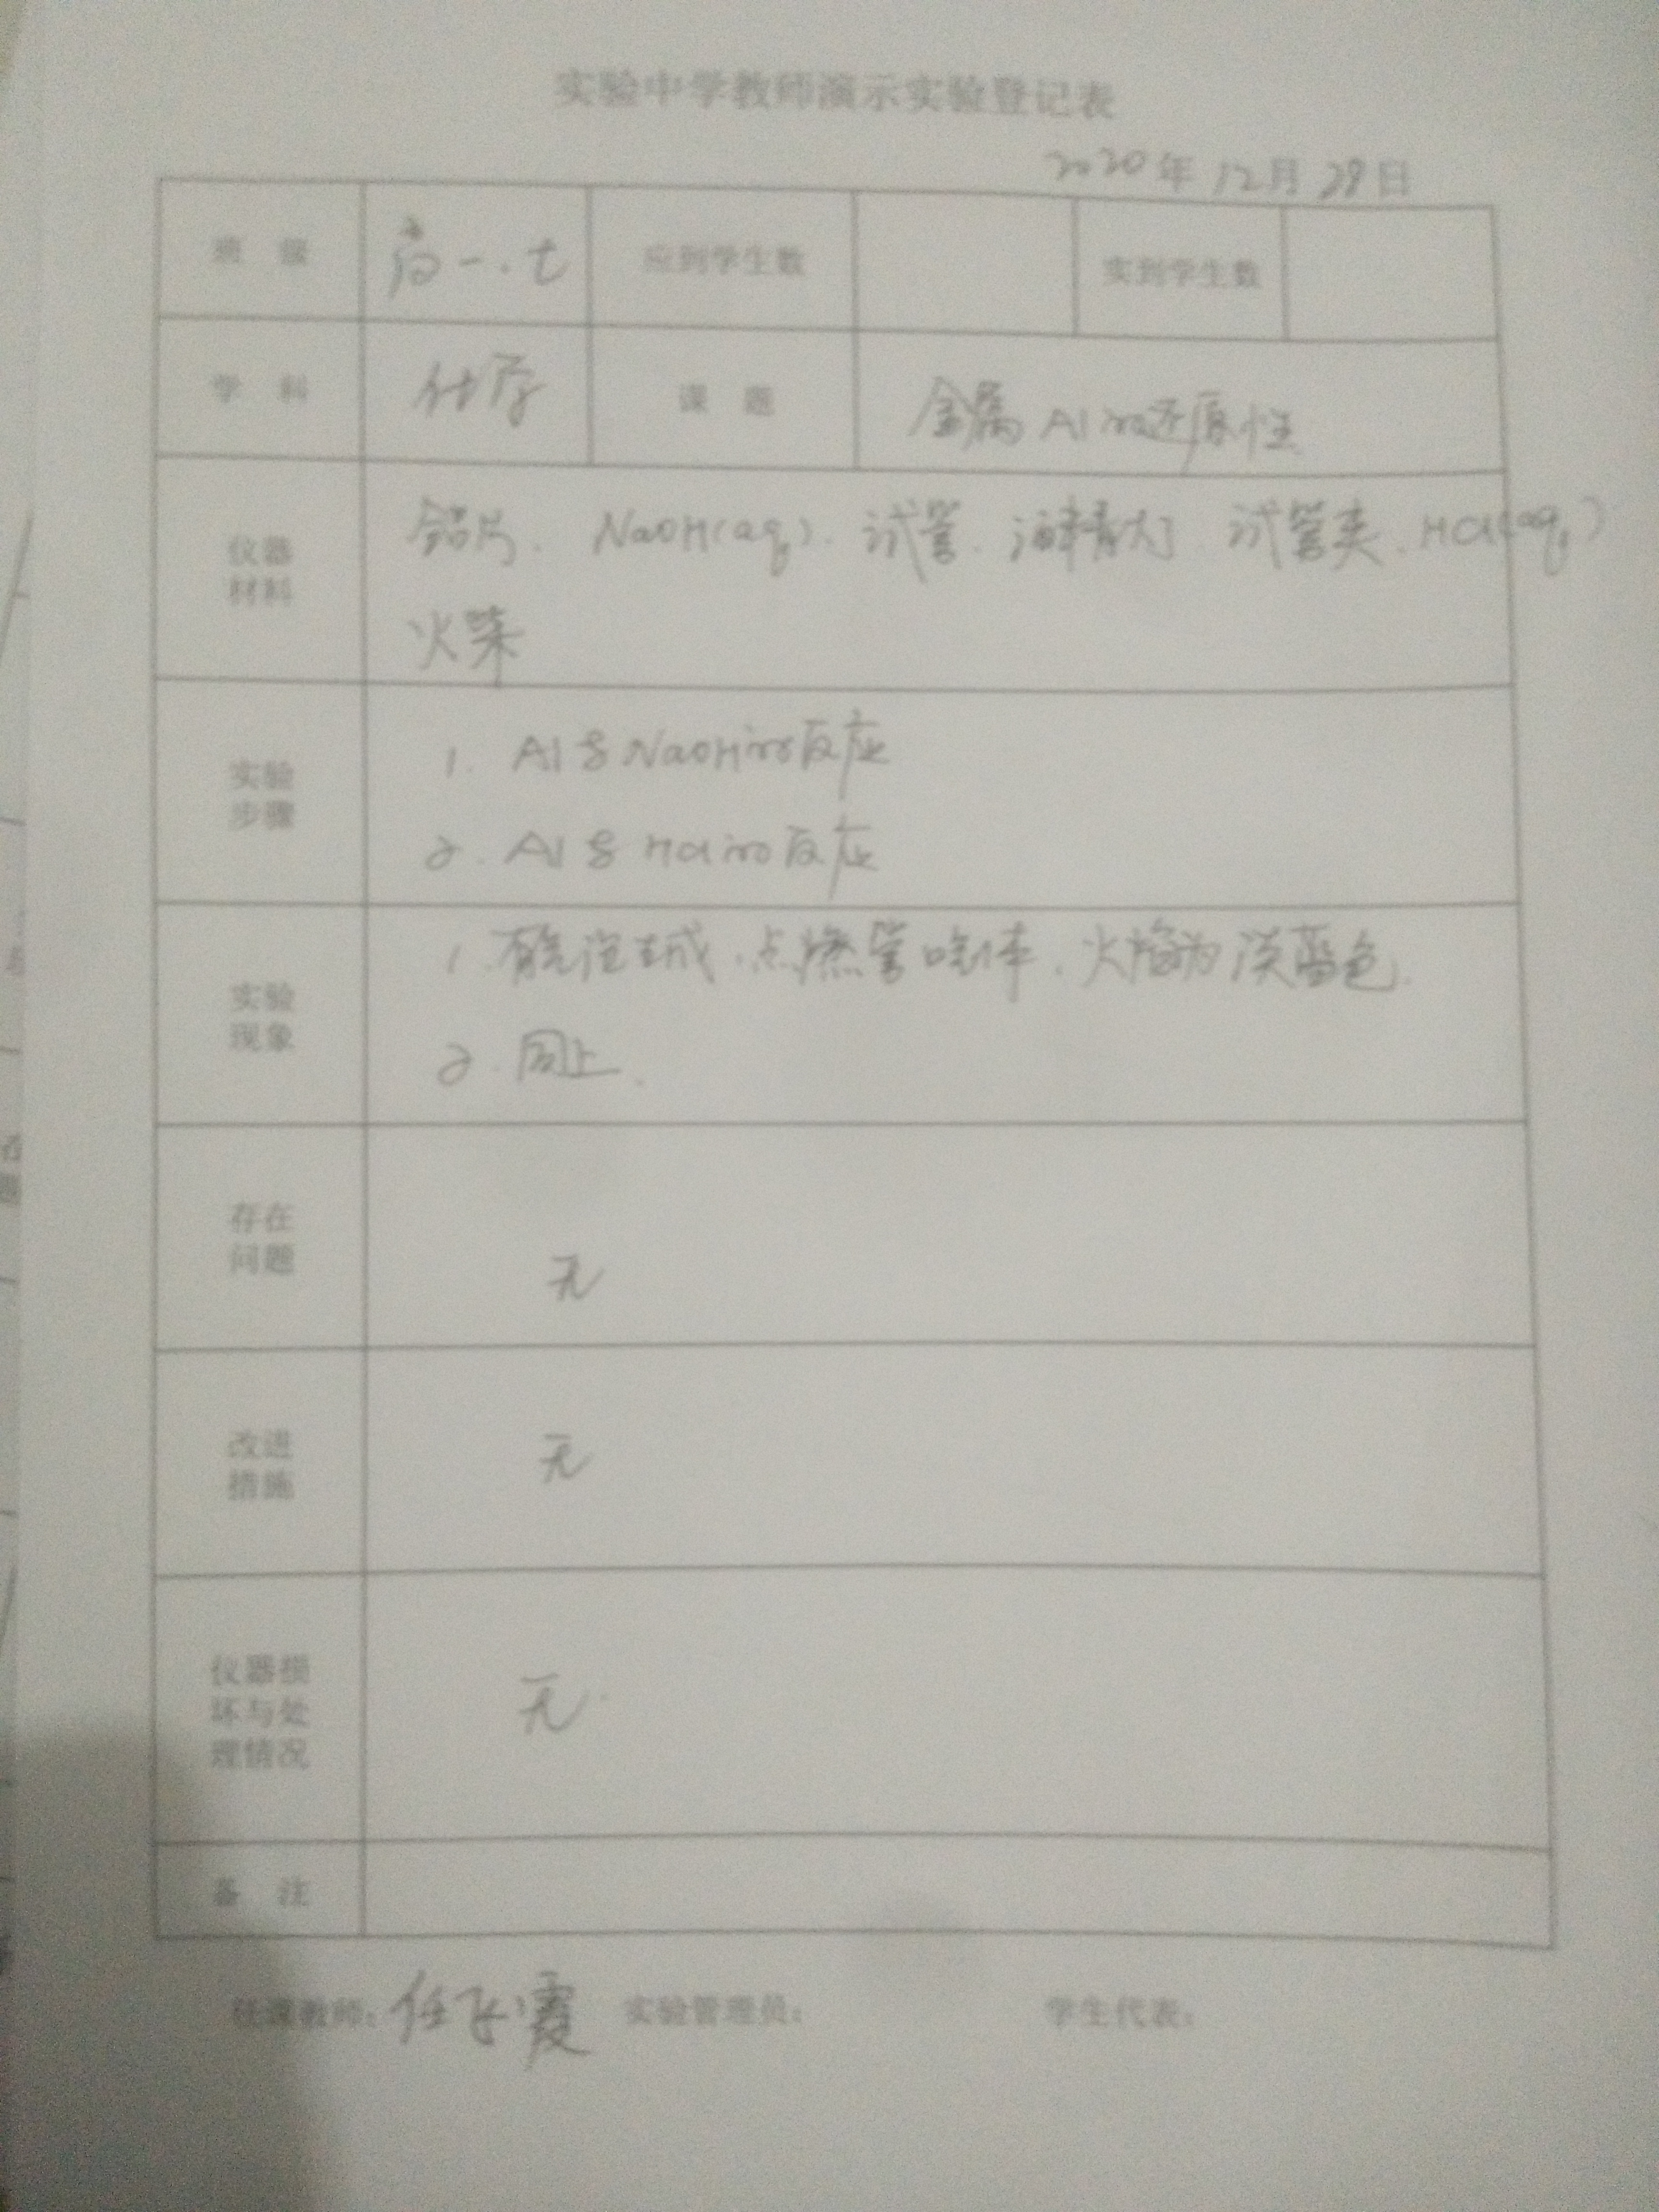 实验中学教师演示实验登记表
2020年 12月 29日
班 级 高一.七 应到学生数 实到学生数
学 科 化学 课 题 金属Al的还原性
仪器 材料 铝片、NaOH(aq)、试管、酒精灯、试管夹、HCl(aq)
火柴
实验 步骤 1. Al与NaOH的反应
2. Al与HCl的反应
实验 现象 1. 有气泡生成,点燃管口气体,火焰为淡蓝色.
2. 同上.
存在 问题 无
改进 措施 无
仪器损 坏与处 理情况 无.
备 注
任课教师:任飞霞 实验管理员: 学生代表: